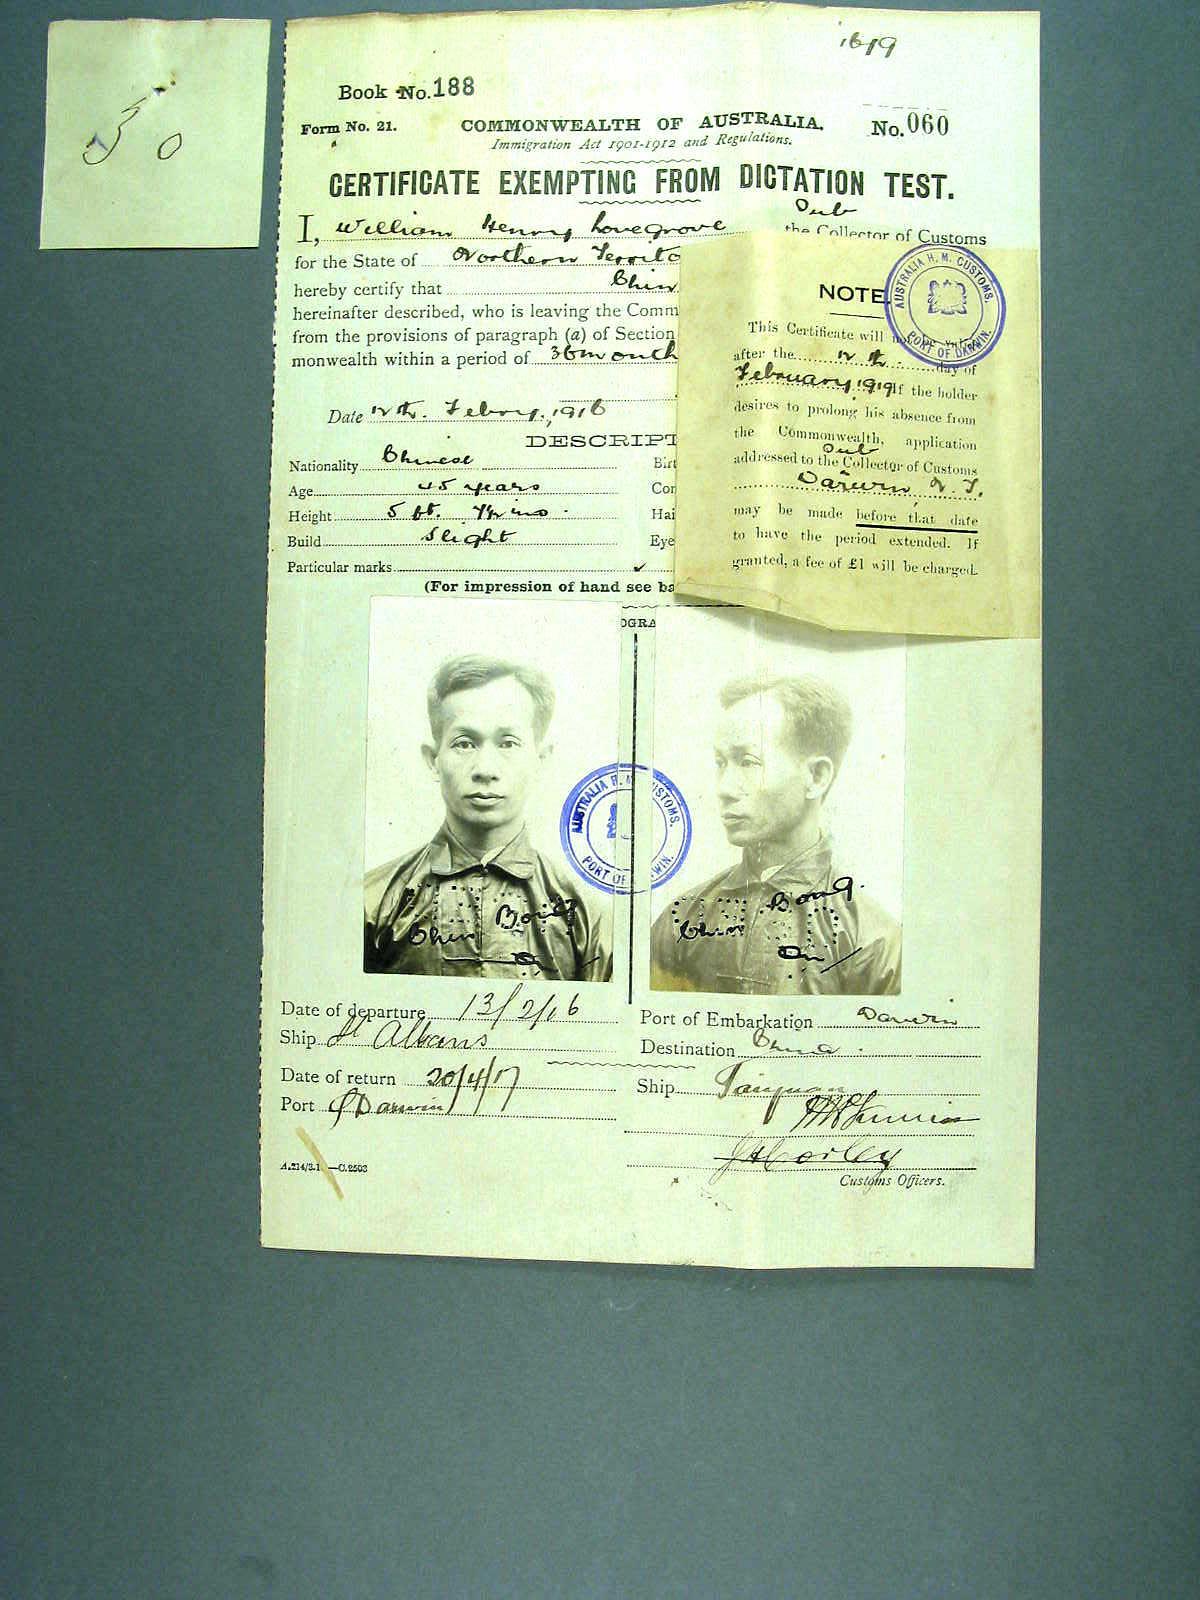 30
1619
Book No. 188
Form No. 21.
COMMONWEALTH OF AUSTRALIA.
No. 060
Immigration Act 1901-1912 and Regulations.
CERTIFICATE EXEMPTING FROM DICTATION TEST.
Sub
I, William Henry Lovegrove the Collector of Customs
for the State of Northern Territo
hereby certify that Chin
hereinafter described, who is leaving the Comm
from the provisions of paragraph (a) of Section
monwealth within a period of 36 month
Date 12th. Febry. 1916
DESCRIPT
Nationality Chinese
Age 45 years
Height 5 ft. 7½ ins.
Build Slight
Particular marks
Birt
Con
Hai
Eye
(For impression of hand see ba
NOTE.
This Certificate will not be valid
after the 12th day of
February 1919 If the holder
desires to prolong his absence from
the Commonwealth, application
Sub
addressed to the Collector of Customs
Darwin N.T.
may be made before that date
to have the period extended. If
granted, a fee of £1 will be charged.
AUSTRALIA H. M. CUSTOMS.
PORT OF DARWIN.
OGRA
AUSTRALIA H. M. CUSTOMS.
PORT OF DARWIN.
Chin Bong
On
Chin Bong.
On
Date of departure 13/2/16
Port of Embarkation Darwin
Ship St Albans
Destination China.
Date of return 20/4/17
Ship Taiyuan
Port Darwin
Customs Officers.
A.214/3.1 —C.2503